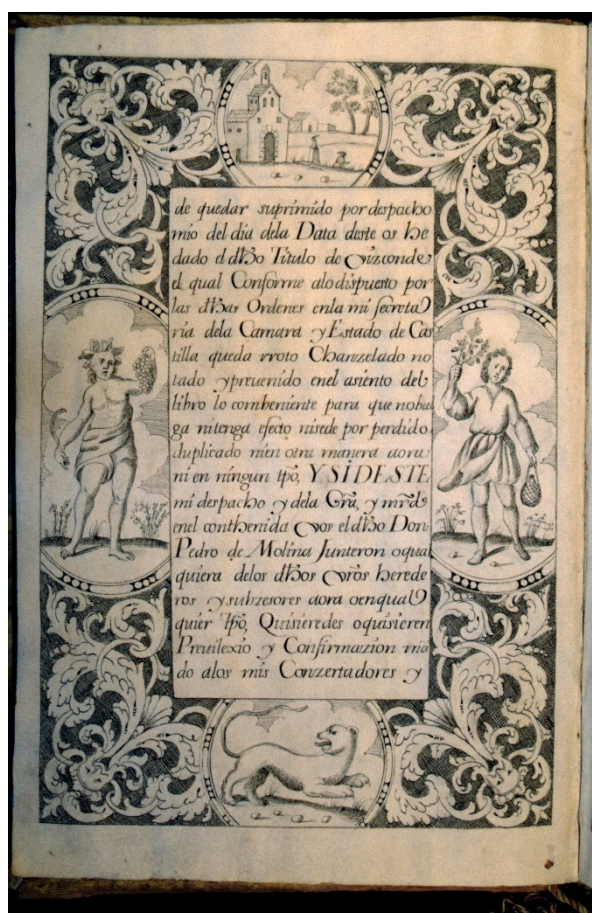 de quedar suprimido por despacho
mio del dia dela Data deste os he
dado el dho Titulo de vizconde
el qual Conforme alo dispuesto por
las dhas Ordenes enla mi secreta
ria dela Camara y Estado de Cas
tilla queda rroto Chanzelado no
tado ypreuenido enel asiento del
libro lo combeniente para que nobal
ga nitenga efecto nisede por perdido
duplicado nien otra manera aora
ni en ningun tpo, Y SI DESTE
mi despacho y dela Gra, y mrd
enel conthenida vos el dho Don
Pedro de Molina Junteron oqual
quiera delos dhos vros herede
ros y subzesores aora oenqual
quier tpo, Quisieredes oquisieren
Preuilexio y Confirmazion ma
do alos mis Conzertadores y